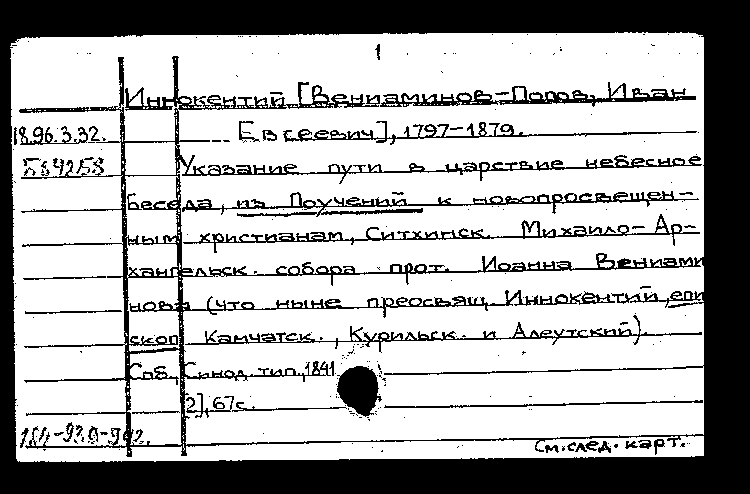 1
Иннокентий [Вениаминов-Попов, Иван
18.96.3.32. Евсеевич], 1797-1879.
Указание пути в царствие небесное
беседа, из Поучений к новопросвещен-
ным христианам, Ситхинск. Михаило-Ар-
хангельск. собора прот. Иоанна Вениами
нова (что ныне преосвящ. Иннокентий, епи
скоп Камчатск., Курильск. и Алеутский).
Спб., Синод. тип., 1841
[2], 67с.
См. след. карт.